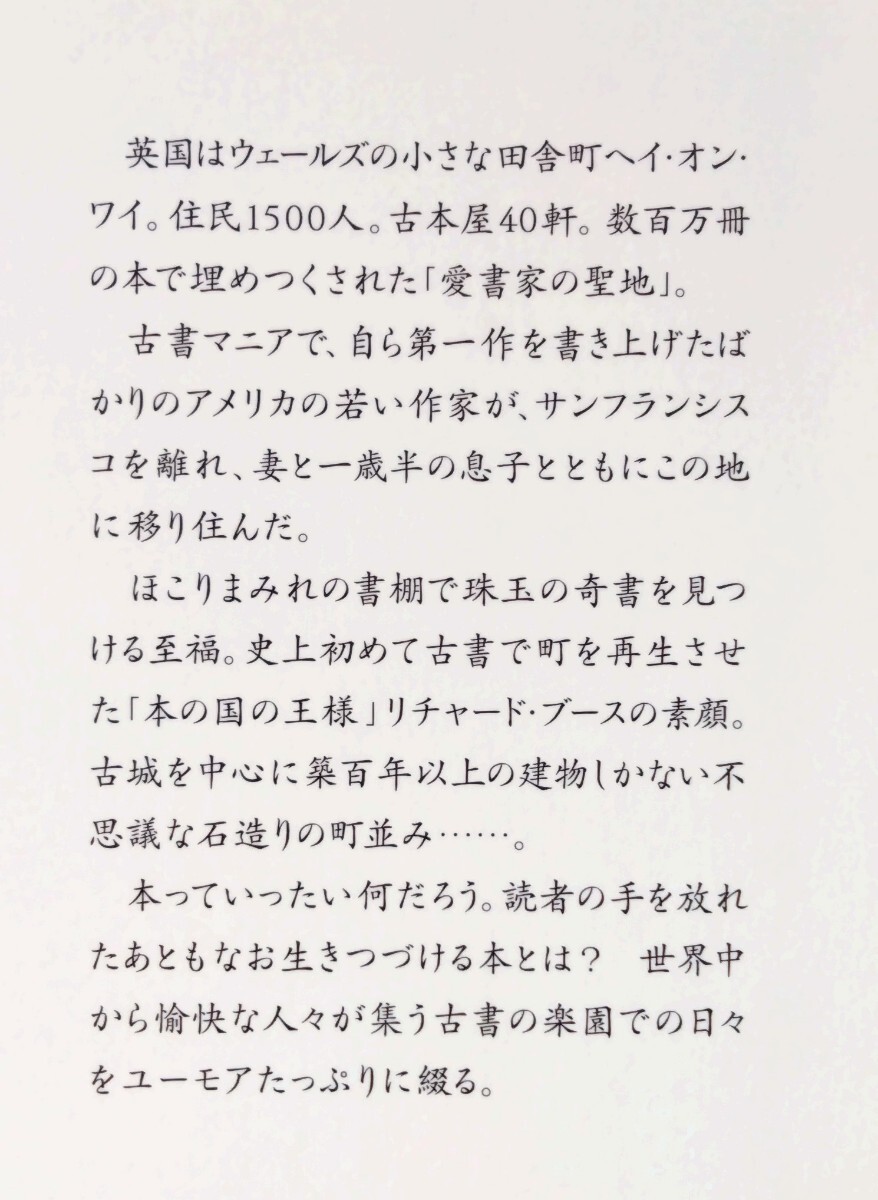 英国はウェールズの小さな田舎町ヘイ・オン・
ワイ。住民1500人。古本屋40軒。数百万冊
の本で埋めつくされた「愛書家の聖地」。
　古書マニアで、自ら第一作を書き上げたば
かりのアメリカの若い作家が、サンフランシス
コを離れ、妻と一歳半の息子とともにこの地
に移り住んだ。
　ほこりまみれの書棚で珠玉の奇書を見つ
ける至福。史上初めて古書で町を再生させ
た「本の国の王様」リチャード・ブースの素顔。
古城を中心に築百年以上の建物しかない不
思議な石造りの町並み……。
　本っていったい何だろう。読者の手を放れ
たあともなお生きつづける本とは？　世界中
から愉快な人々が集う古書の楽園での日々
をユーモアたっぷりに綴る。